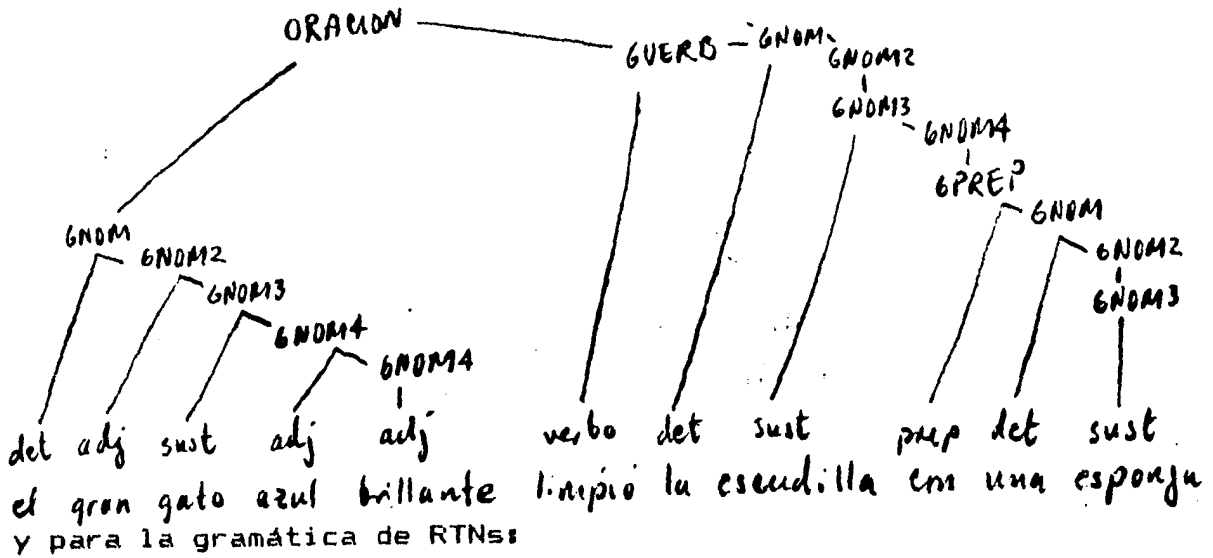 ORACION
GVERB GNOM
GNOM2
GNOM3
GNOM4
GPREP
GNOM
GNOM GNOM2
GNOM2 GNOM3
GNOM3
GNOM4
GNOM4
det adj sust adj adj verbo det sust prep det sust
el gran gato azul brillante limpió la escudilla con una esponja
y para la gramática de RTNs: